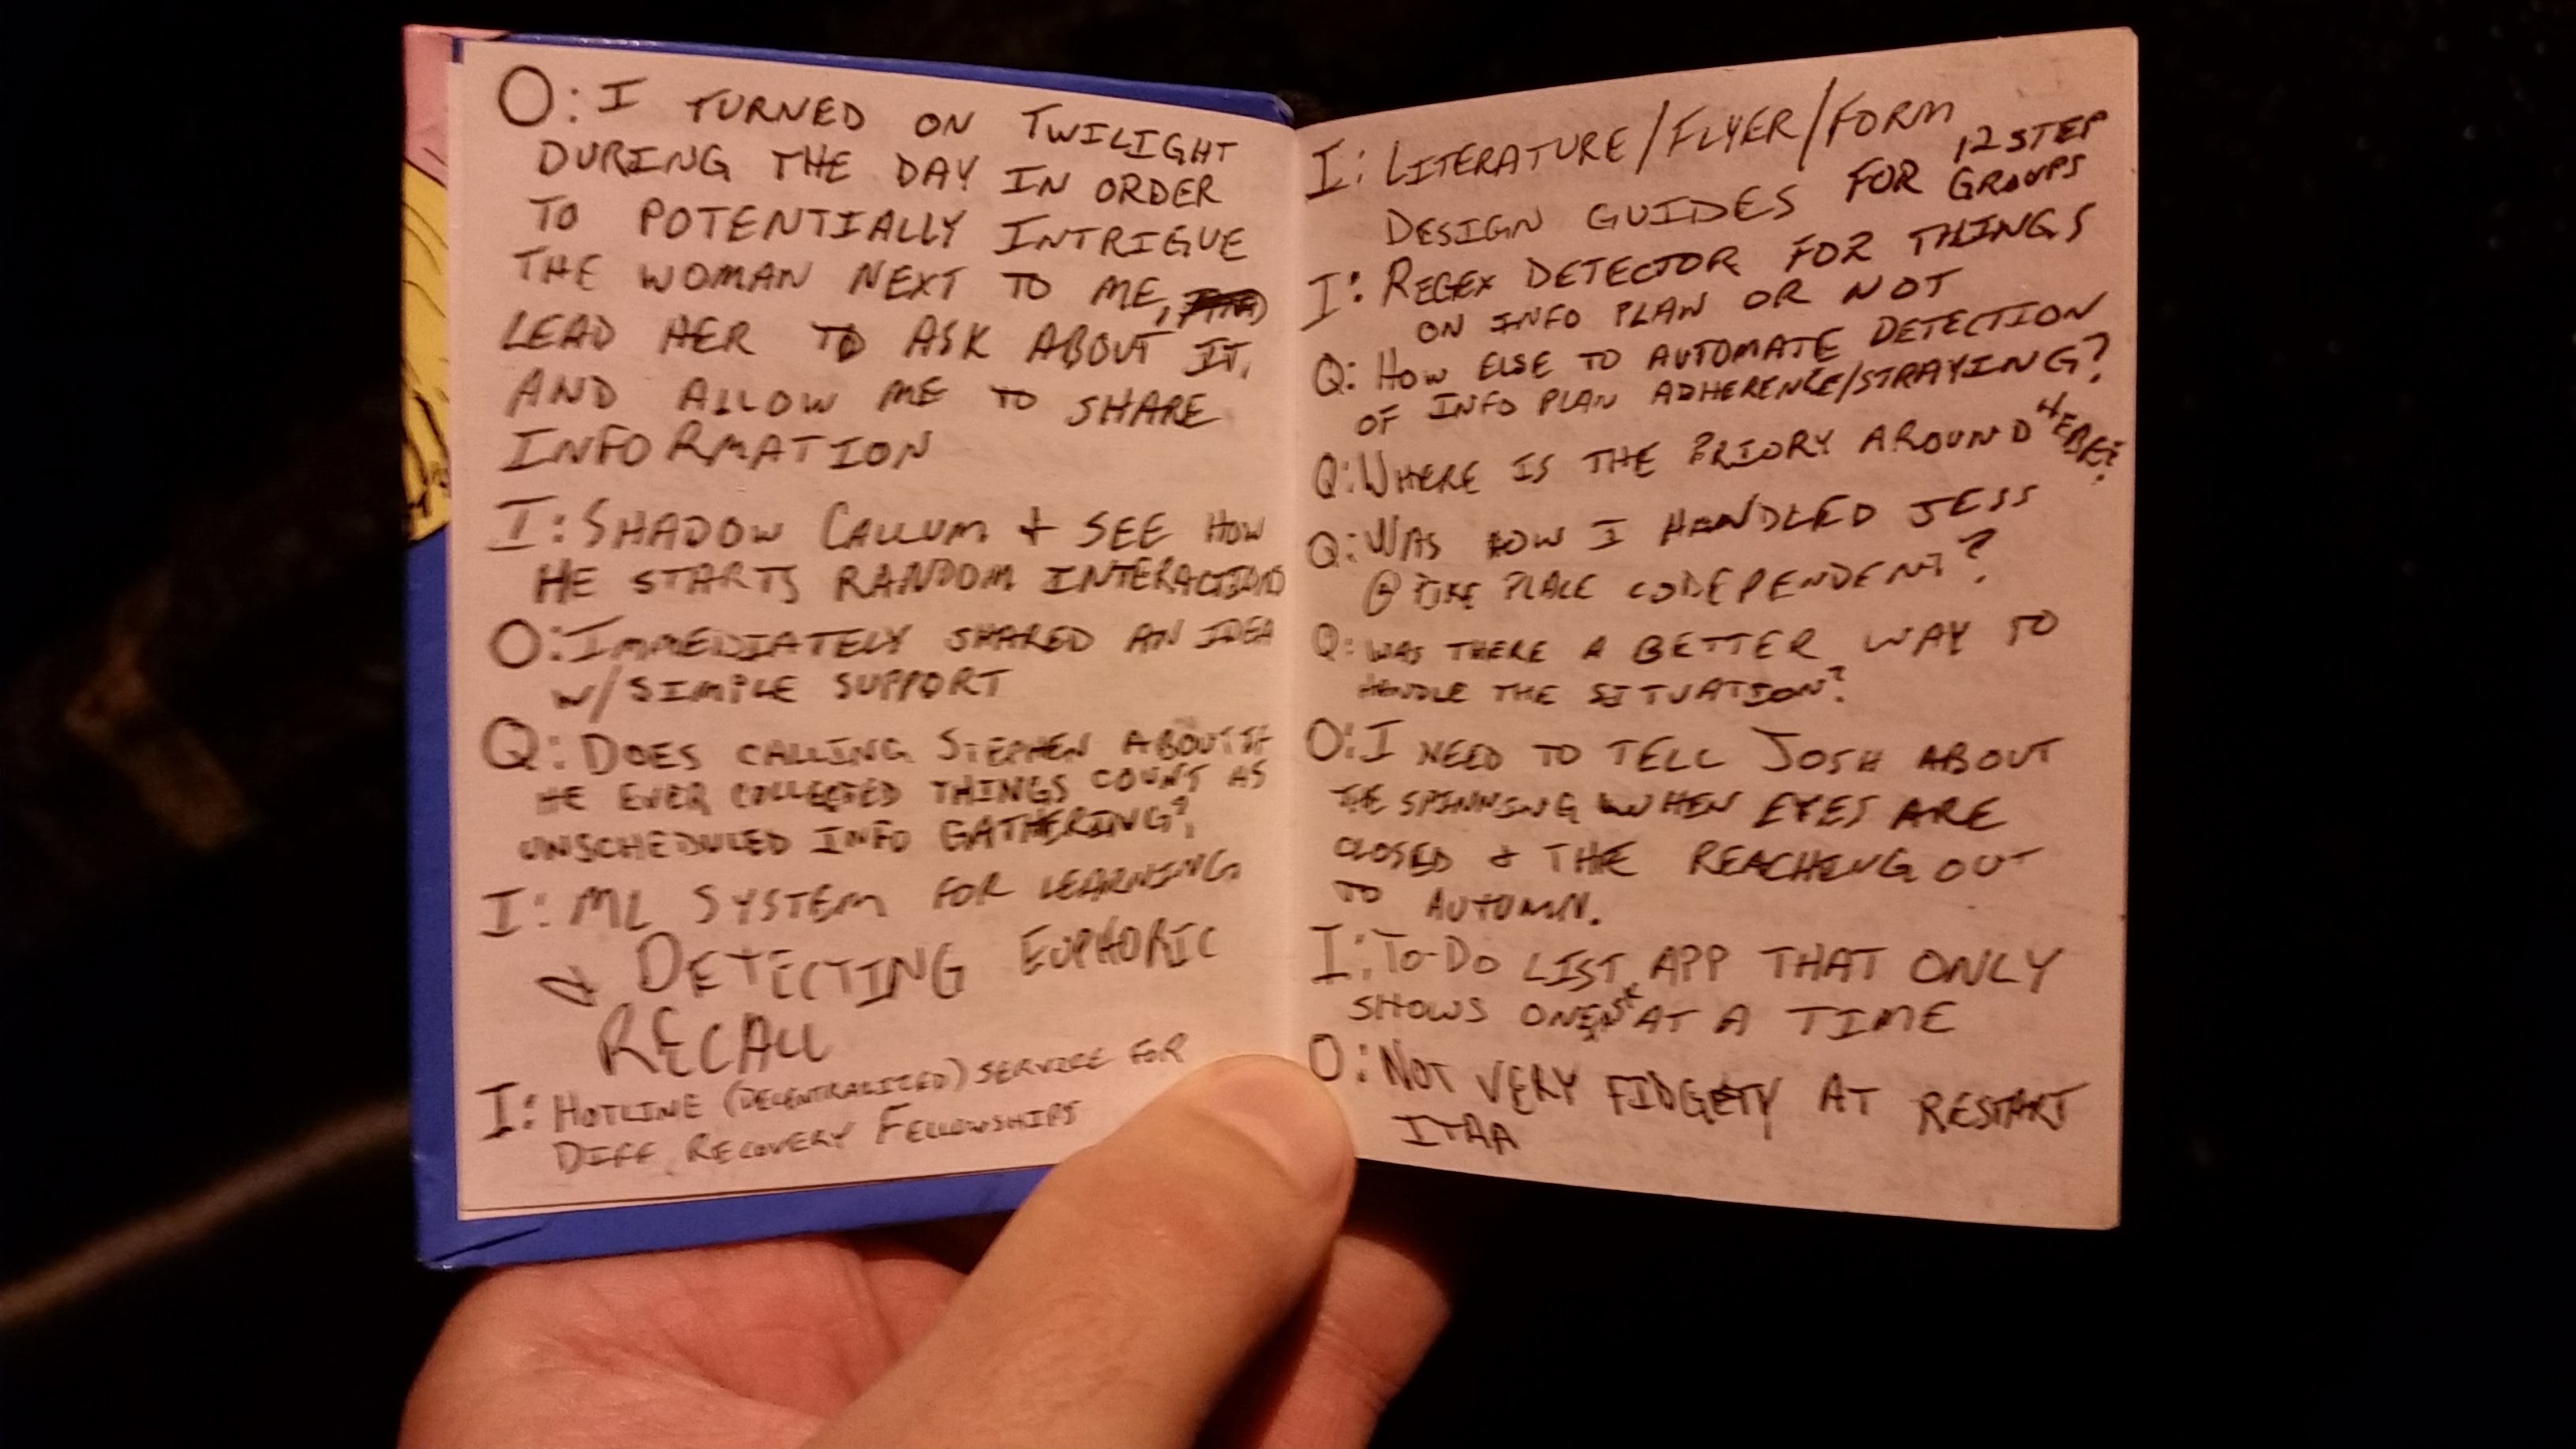 O: I TURNED ON TWILIGHT
DURING THE DAY IN ORDER
TO POTENTIALLY INTRIGUE
THE WOMAN NEXT TO ME,
LEAD HER TO ASK ABOUT IT,
AND ALLOW ME TO SHARE
INFORMATION
I: SHADOW CALLUM + SEE HOW
HE STARTS RANDOM INTERACTIONS
O: IMMEDIATELY SHARED AN IDEA
W/ SIMPLE SUPPORT
Q: DOES CALLING STEPHEN ABOUT IF
HE EVER COLLECTED THINGS COUNT AS
UNSCHEDULED INFO GATHERING?
I: ML SYSTEM FOR LEARNING
→ DETECTING EUPHORIC
RECALL
I: HOTLINE (DECENTRALIZED) SERVICE FOR
DIFF. RECOVERY FELLOWSHIPS
I: LITERATURE/FLYER/FORM
DESIGN GUIDES FOR 12 STEP GROUPS
I: REGEX DETECTOR FOR THINGS
ON INFO PLAN OR NOT
Q: HOW ELSE TO AUTOMATE DETECTION
OF INFO PLAN ADHERENCE/STRAYING?
Q: WHERE IS THE PRIORY AROUND HERE?
Q: WAS HOW I HANDLED JESS
@ PLACE CODEPENDENT?
Q: WAS THERE A BETTER WAY TO
HANDLE THE SITUATION?
O: I NEED TO TELL JOSH ABOUT
THE SPINNING WHEN EYES ARE
CLOSED & THE REACHING OUT
TO AUTUMN.
I: TO-DO LIST APP THAT ONLY
SHOWS ONE AT A TIME
O: NOT VERY FIDGETY AT RESTART
ITAA